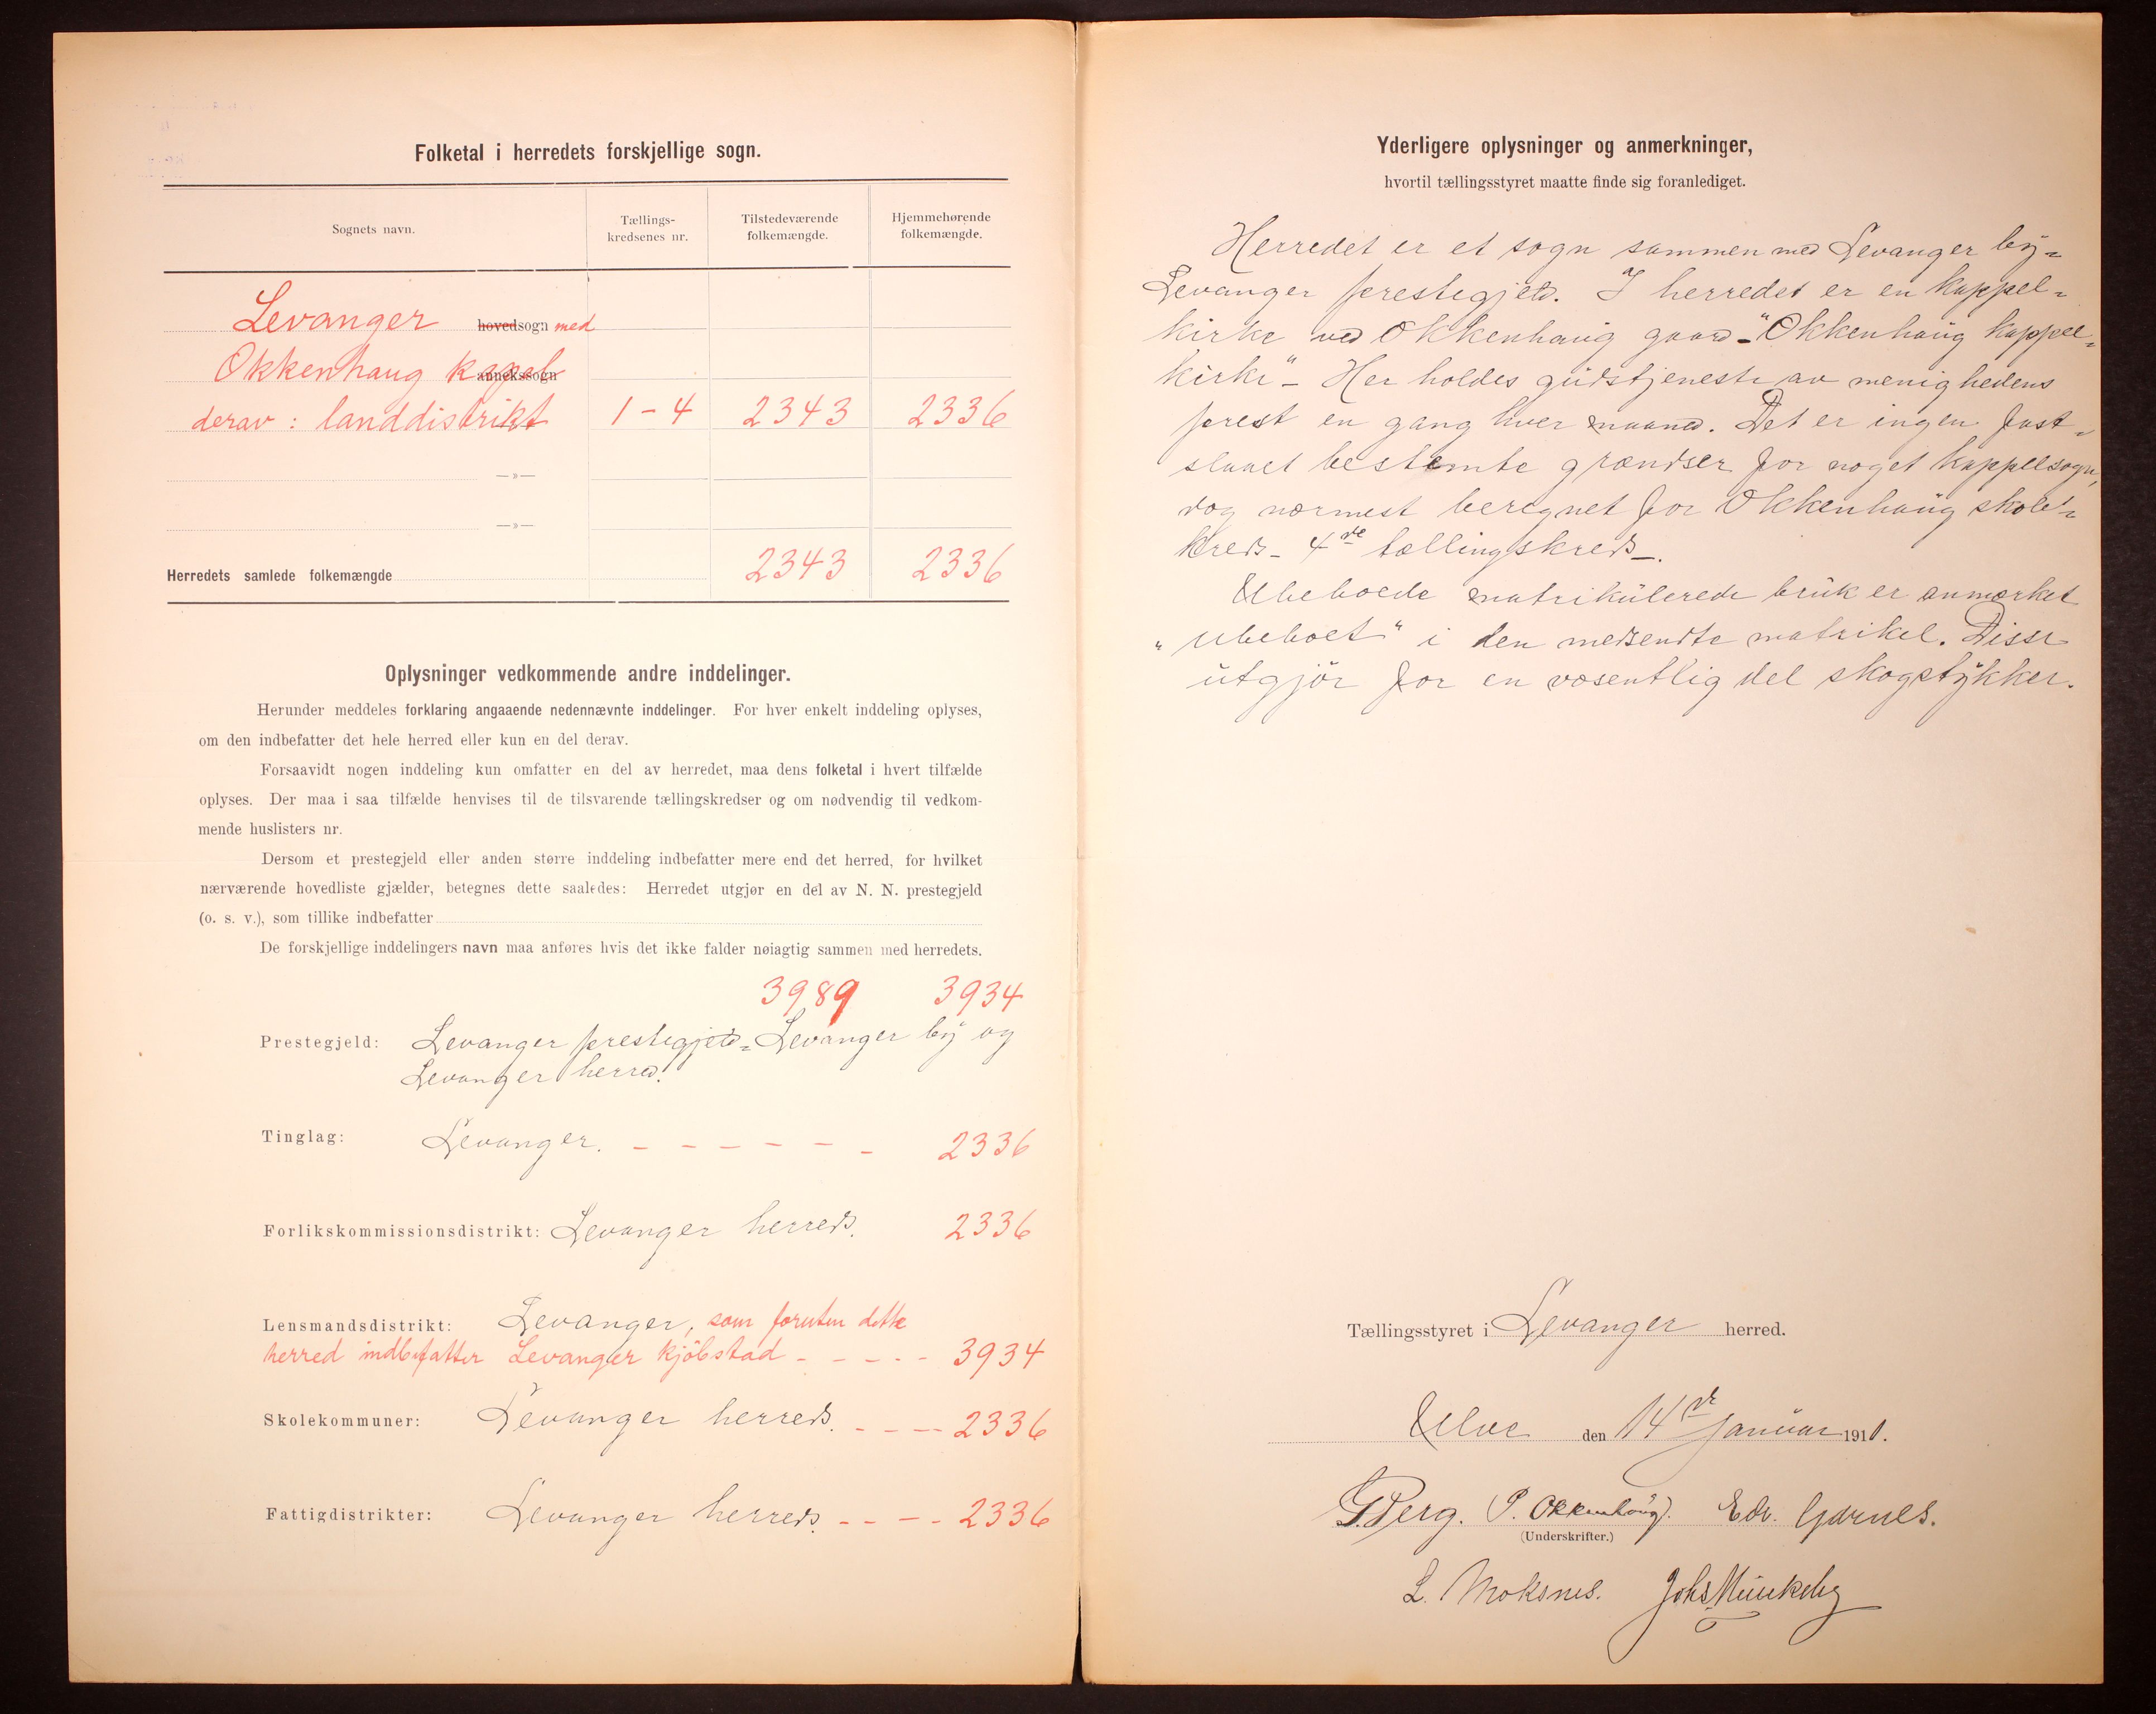 Folketal i herredets forskjellige sogn.
Sognets navn.
Tællings-
kredsenes nr.
Tilstedeværende
folkemængde.
Hjemmehørende
folkemængde.
Levanger hovedsogn med
Okkenhaug Kapel annekssogn
derav : landdistrikt 1-4 2343 2336
—»—
—»—
Herredets samlede folkemængde 2343 2336
Oplysninger vedkommende andre inddelinger.
Herunder meddeles forklaring angaaende nedennævnte inddelinger. For hver enkelt inddeling oplyses,
om den indbefatter det hele herred eller kun en del derav.
Forsaavidt nogen inddeling kun omfatter en del av herredet, maa dens folketal i hvert tilfælde
oplyses. Der maa i saa tilfælde henvises til de tilsvarende tællingskredser og om nødvendig til vedkom-
mende huslisters nr.
Dersom et prestegjeld eller anden større inddeling indbefatter mere end det herred, for hvilket
nærværende hovedliste gjælder, betegnes dette saaledes: Herredet utgjør en del av N. N. prestegjeld
(o. s. v.), som tillike indbefatter
De forskjellige inddelingers navn maa anføres hvis det ikke falder nøiagtig sammen med herredets.
3989 3934
Prestegjeld: Levanger prestegjeld = Levanger by og
Levanger herred.
Tinglag: Levanger. - - - - - - 2336
Forlikskommissionsdistrikt: Levanger herreds. 2336
Lensmandsdistrikt: Levanger, som foruten dette
herred indbefatter Levanger kjöbstad - - - - - 3934
Skolekommuner: Levanger herreds. - - - - 2336
Fattigdistrikter: Levanger herreds. - - - - 2336
Yderligere oplysninger og anmerkninger,
hvortil tællingsstyret maatte finde sig foranlediget.
Herredet er et sogn sammen med Levanger by =
Levanger prestegjeld. I herredet er en kappel=
kirke ved Okkenhaug gaard - "Okkenhaug kappel=
kirke" - Her holdes gudstjeneste av menighedens
prest en gang hver maaned. Det er ingen fast=
slaaet bestemte grændser for noget kappelsogn,
dog nærmest beregnet for Okkenhaug skole=
kreds - 4de tællingskreds -.
Ubeboede matrikulerede bruk er anmærket
"ubeboet" i den medsendte matrikel. Disse
utgjör for en væsentlig del skogstykker.
Tællingsstyret i Levanger herred.
Ulve den 14de Januar 1911.
G. Berg. P. Okkenhaug. Edv. Garnes.
(Underskrifter.)
L. Moksnes. Johs Munkeby